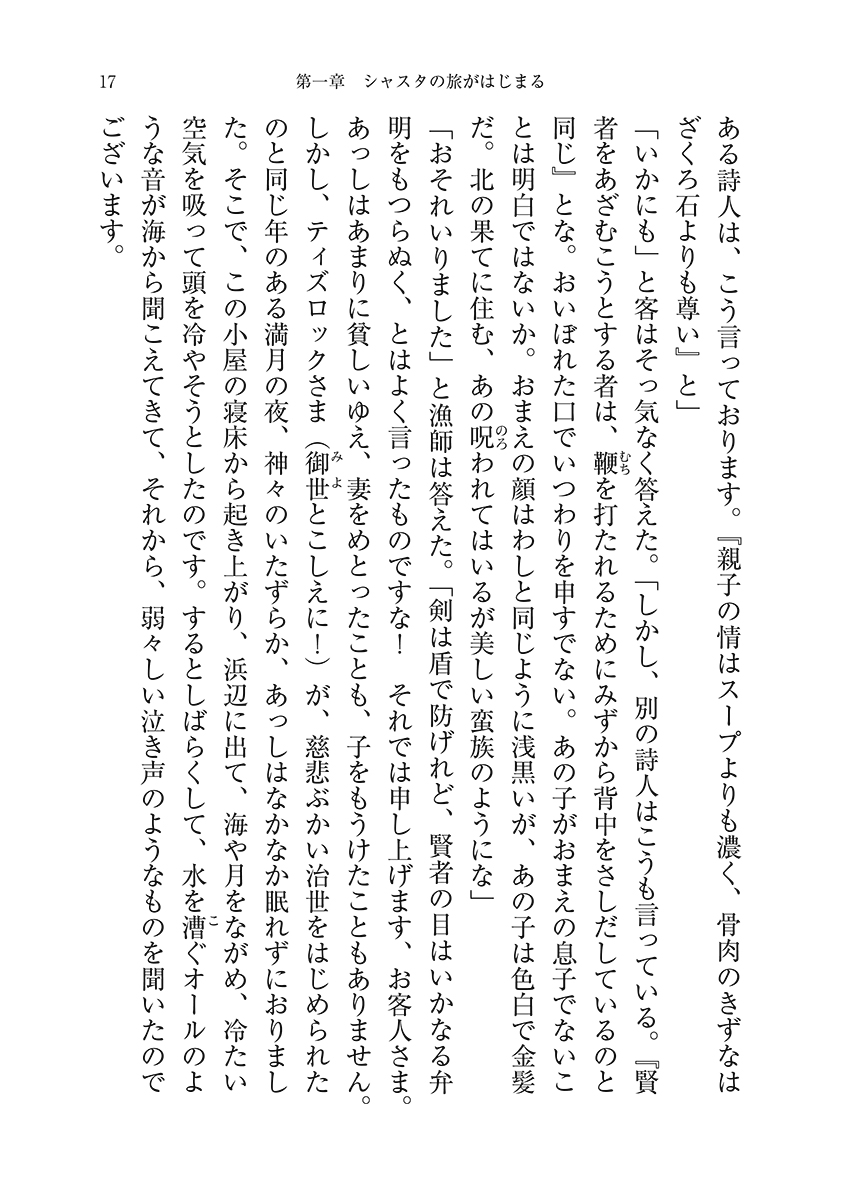 17
第一章　シャスタの旅がはじまる
ある詩人は、こう言っております。『親子の情はスープよりも濃く、骨肉のきずなは
ざくろ石よりも尊い』と」
「いかにも」と客はそっ気なく答えた。「しかし、別の詩人はこうも言っている。『賢
者をあざむこうとする者は、鞭むちを打たれるためにみずから背中をさしだしているのと
同じ』とな。おいぼれた口でいつわりを申すでない。あの子がおまえの息子でないこ
とは明白ではないか。おまえの顔はわしと同じように浅黒いが、あの子は色白で金髪
だ。北の果てに住む、あの呪のろわれてはいるが美しい蛮族のようにな」
「おそれいりました」と漁師は答えた。「剣は盾で防げれど、賢者の目はいかなる弁
明をもつらぬく、とはよく言ったものですな！　それでは申し上げます、お客人さま。
あっしはあまりに貧しいゆえ、妻をめとったことも、子をもうけたこともありません。
しかし、ティズロックさま（御世みよとこしえに！）が、慈悲ぶかい治世をはじめられた
のと同じ年のある満月の夜、神々のいたずらか、あっしはなかなか眠れずにおりまし
た。そこで、この小屋の寝床から起き上がり、浜辺に出て、海や月をながめ、冷たい
空気を吸って頭を冷やそうとしたのです。するとしばらくして、水を漕こぐオールのよ
うな音が海から聞こえてきて、それから、弱々しい泣き声のようなものを聞いたので
ございます。